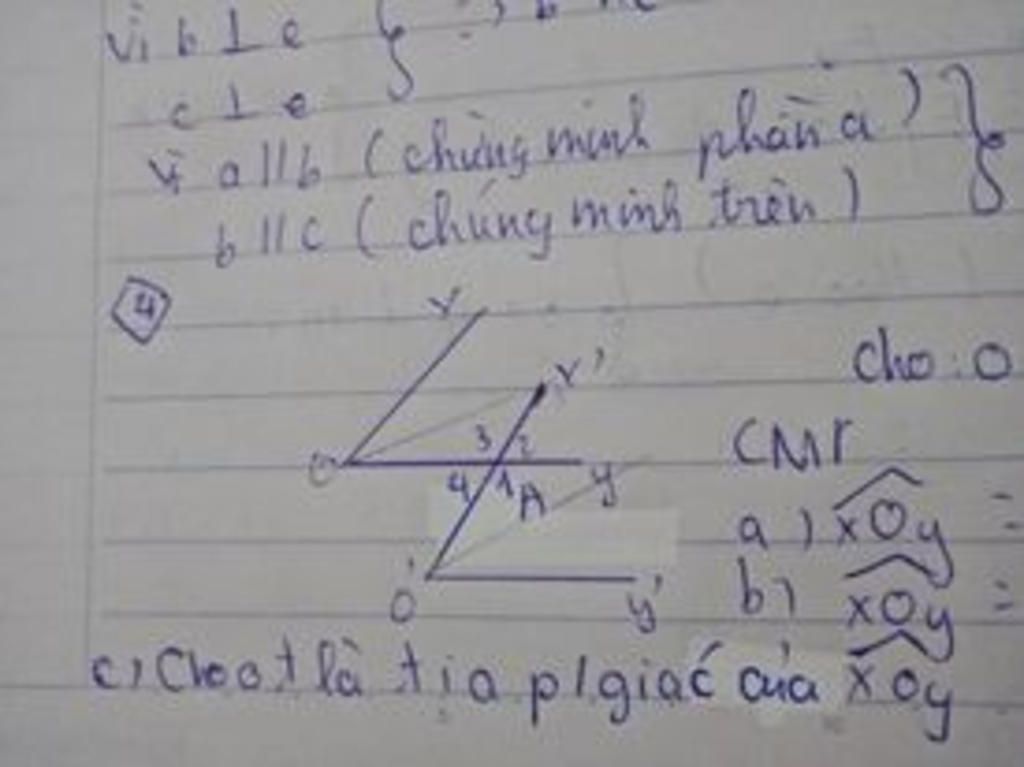 vì b ⊥ e } : b
c ⊥ e
vì a // b (chứng minh phần a) }
b // c (chứng minh trên)
4
x
x'
Cho: O
3 2
O y
CMr
4 1 A
a) xOy =
O' y'
b) xOy =
c, Cho ot là tia p/giác của xOy